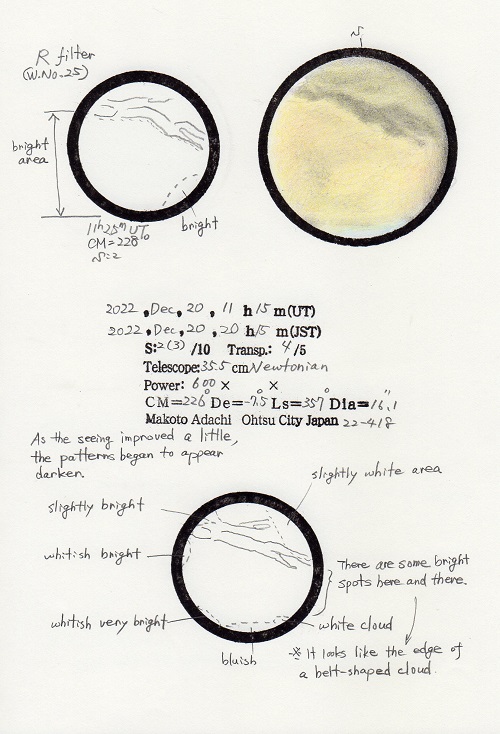 S
R filter
(W.No.25)
bright
area
bright
11h25m UT
CM=228°
S:2
2022, Dec, 20, 11 h 15 m(UT)
2022, Dec, 20, 20 h 15 m(JST)
S:2(3) /10 Transp.: 4/5
Telescope:35.5 cm Newtonian
Power: 600 × ×
CM=226° De=-7.5° Ls=357° Dia=16.1"
Makoto Adachi Ohtsu City Japan 22-418
As the seeing improved a little,
the patterns began to appear
darken.
slightly white area
slightly bright
whitish bright
There are some bright
spots here and there.
whitish very bright
white cloud
bluish
※ It looks like the edge of
a belt-shaped cloud.